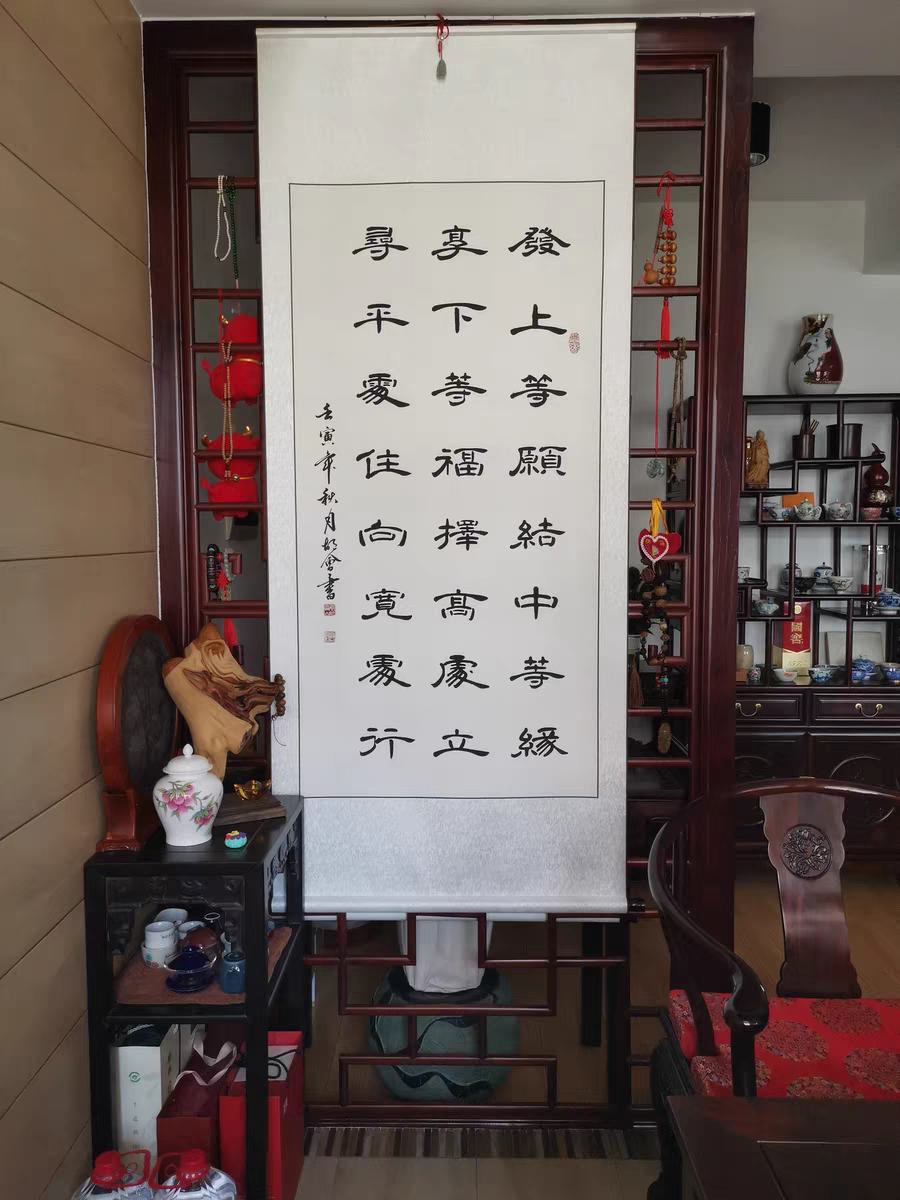 發上等願結中等緣
享下等福擇高處立
尋平處住向寬處行
壬寅年秋月胡會書
國窖